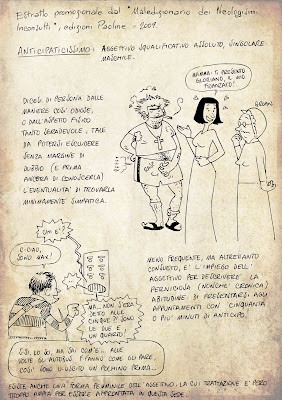 Estratto promozionale dal "Maledizionario dei Neologismi
Inconsulti", edizioni Paoline - 2009.
ANTICIPATICISSIMO: AGGETTIVO SQUALIFICATIVO ASSOLUTO, SINGOLARE
MASCHILE.
DICESI DI PERSONA DALLE
MANIERE COSÌ ODIOSE,
O DALL'ASPETTO FISICO
TANTO SGRADEVOLE, TALE
DA POTERSI ESCLUDERE
SENZA MARGINE DI
DUBBIO (E PRIMA
ANCORA DI CONOSCERLA)
L'EVENTUALITÀ DI TROVARLA
MINIMAMENTE SIMPATICA.
MAMMA: TI PRESENTO
GLORIANO, IL MIO
FIDANZATO!
GROAN!
UM... E'?
C-CIAO,
SONO MAX!
MA... NON S'ERA
DETTO ALLE
CINQUE?! SONO
LE DUE E
UN QUARTO!
SÌ, SÌ, LO SO, MA SAI COM'È... ALLE
VOLTE GLI AUTOBUS FANNO COME GLI PARE,
COSÌ SONO USCITO UN POCHINO PRIMA...
MENO FREQUENTE, MA ALTRETTANTO
CONSUETO, E' L'IMPIEGO DELL'
AGGETTIVO PER DESCRIVERE LA
PERNICIOSA (NONCHÉ CRONICA)
ABITUDINE DI PRESENTARSI AGLI
APPUNTAMENTI CON CINQUANTA
O PIÙ MINUTI DI ANTICIPO.
ESISTE ANCHE UNA FORMA FEMMINILE DELL'AGGETTIVO, LA CUI TRATTAZIONE E' PERÒ
TROPPO AMPIA PER ESSERE AFFRONTATA IN QUESTA SEDE.